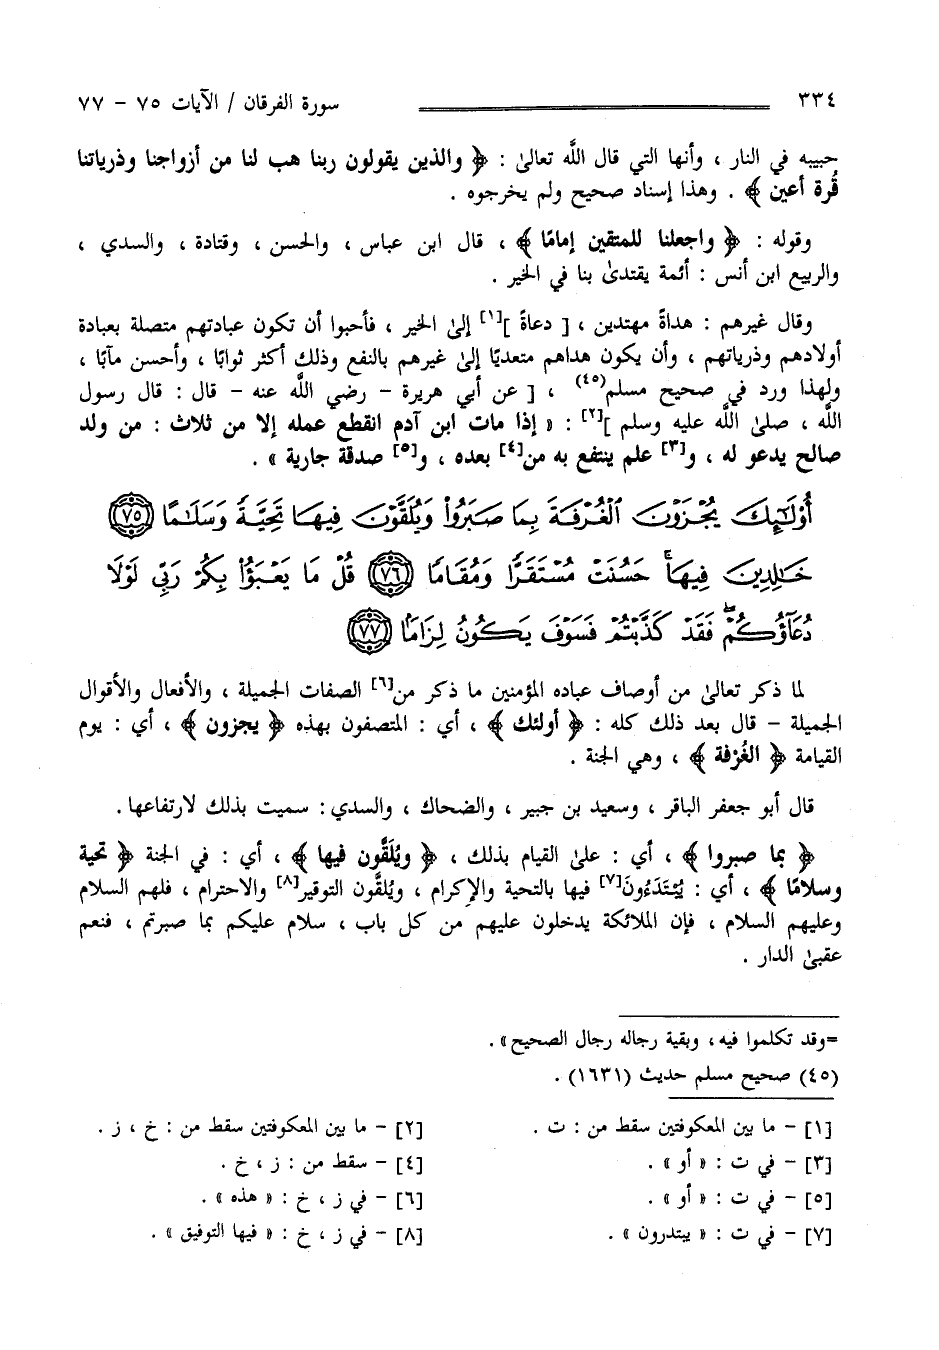 ٣٣٤ سورة الفرقان / الآيات ٧٥ – ٧٧
حبيبه في النار ، وأنها التي قال اللَّه تعالىٰ : ﴿ والذين يقولون ربنا هب لنا من أزواجنا وذرياتنا
قُرة أعين ﴾ . وهذا إسناد صحيح ولم يخرجوه .
وقوله : ﴿ واجعلنا للمتقين إمامًا ﴾ ، قال ابن عباس ، والحسن ، وقتادة ، والسدي ،
والربيع ابن أنس : أئمة يقتدىٰ بنا في الخير .
وقال غيرهم : هداةً مهتدين ، [ دعاةً ][١] إلىٰ الخير ، فأحبوا أن تكون عبادتهم متصلة بعبادة
أولادهم وذرياتهم ، وأن يكون هداهم متعديًا إلىٰ غيرهم بالنفع وذلك أكثر ثوابًا ، وأحسن مآبًا ،
ولهذا ورد في صحيح مسلم(٤٥) ، [ عن أبي هريرة – رضي اللَّه عنه – قال : قال رسول
اللَّه ، صلىٰ اللَّه عليه وسلم ][٢] : « إذا مات ابن آدم انقطع عمله إلا من ثلاث : من ولد
صالح يدعو له ، و[٣] علم ينتفع به من[٤] بعده ، و[٥] صدقة جارية » .
أُوْلَٰٓئِكَ يُجْزَوْنَ ٱلْغُرْفَةَ بِمَا صَبَرُوا۟ وَيُلَقَّوْنَ فِيهَا تَحِيَّةً وَسَلَٰمًا ٧٥
خَٰلِدِينَ فِيهَا ۚ حَسُنَتْ مُسْتَقَرًّا وَمُقَامًا ٧٦ قُلْ مَا يَعْبَؤُا۟ بِكُمْ رَبِّى لَوْلَا
دُعَآؤُكُمْ ۖ فَقَدْ كَذَّبْتُمْ فَسَوْفَ يَكُونُ لِزَامًۢا ٧٧
لما ذكر تعالىٰ من أوصاف عباده المؤمنين ما ذكر من[٦] الصفات الجميلة ، والأفعال والأقوال
الجميلة – قال بعد ذلك كله : ﴿ أولئك ﴾ ، أي : المتصفون بهذه ﴿ يجزون ﴾ ، أي : يوم
القيامة ﴿ الغُرْفة ﴾ ، وهي الجنة .
قال أبو جعفر الباقر ، وسعيد بن جبير ، والضحاك ، والسدي : سميت بذلك لارتفاعها .
﴿ بما صبروا ﴾ ، أي : علىٰ القيام بذلك ، ﴿ ويُلَقَّون فيها ﴾ ، أي : في الجنة ﴿ تحية
وسلامًا ﴾ ، أي : يُبْتَدَءُونَ[٧] فيها بالتحية والإكرام ، ويُلقَّون التوقير[٨] والاحترام ، فلهم السلام
وعليهم السلام ، فإن الملائكة يدخلون عليهم من كل باب ، سلام عليكم بما صبرتم ، فنعم
عقبىٰ الدار .
=وقد تكلموا فيه ، وبقية رجاله رجال الصحيح» .
(٤٥) صحيح مسلم حديث (١٦٣١) .
[١] – ما بين المعكوفتين سقط من : ت . [٢] – ما بين المعكوفتين سقط من : خ ، ز .
[٣] – في ت : « أو » . [٤] – سقط من : ز ، خ .
[٥] – في ت : « أو » . [٦] – في ز ، خ : « هذه » .
[٧] – في ت : « يبتدرون » . [٨] – في ز ، خ : « فيها التوفيق » .